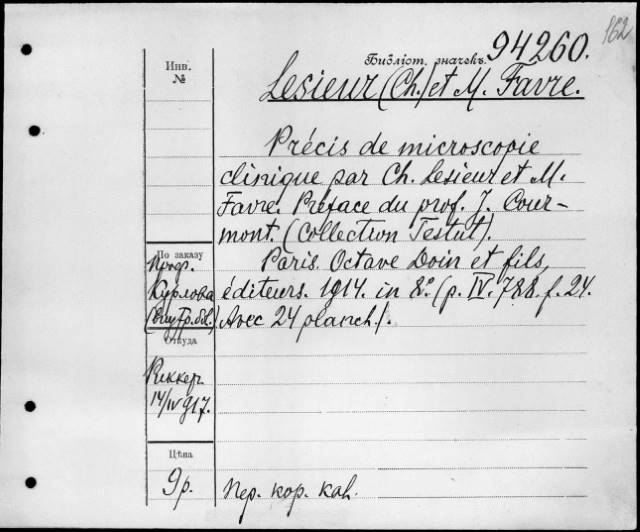 162
Библіот. значекъ. 94260.
Инв.
№
Lesieur (Ch.) et M. Favre.
Précis de microscopie
clinique par Ch. Lesieur et M.
Favre. Préface du prof. J. Cour-
mont. (Collection Testut).
По заказу
Проф.
Курлова
Paris. Octave Doin et fils,
éditeurs. 1914. in 8º. (p. IV. 788. f. 24.
Avec 24 planch.).
Откуда
Риккер
14/IV 917.
Цѣна
9 р.
Пер. кор.